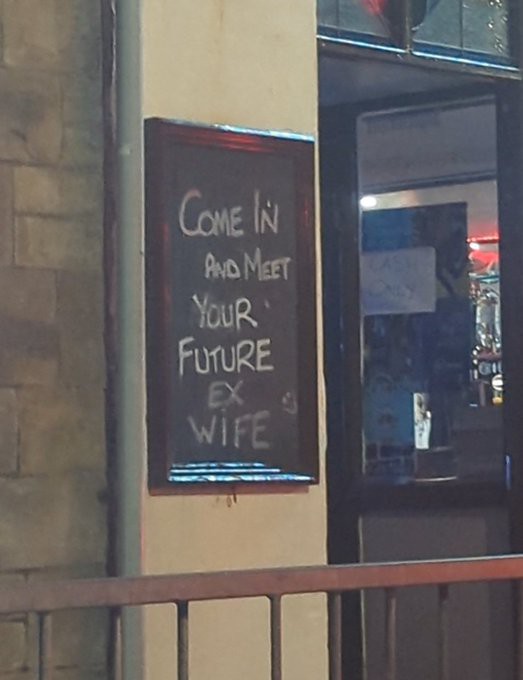 COME IN
AND MEET
YOUR
FUTURE
EX
WIFE